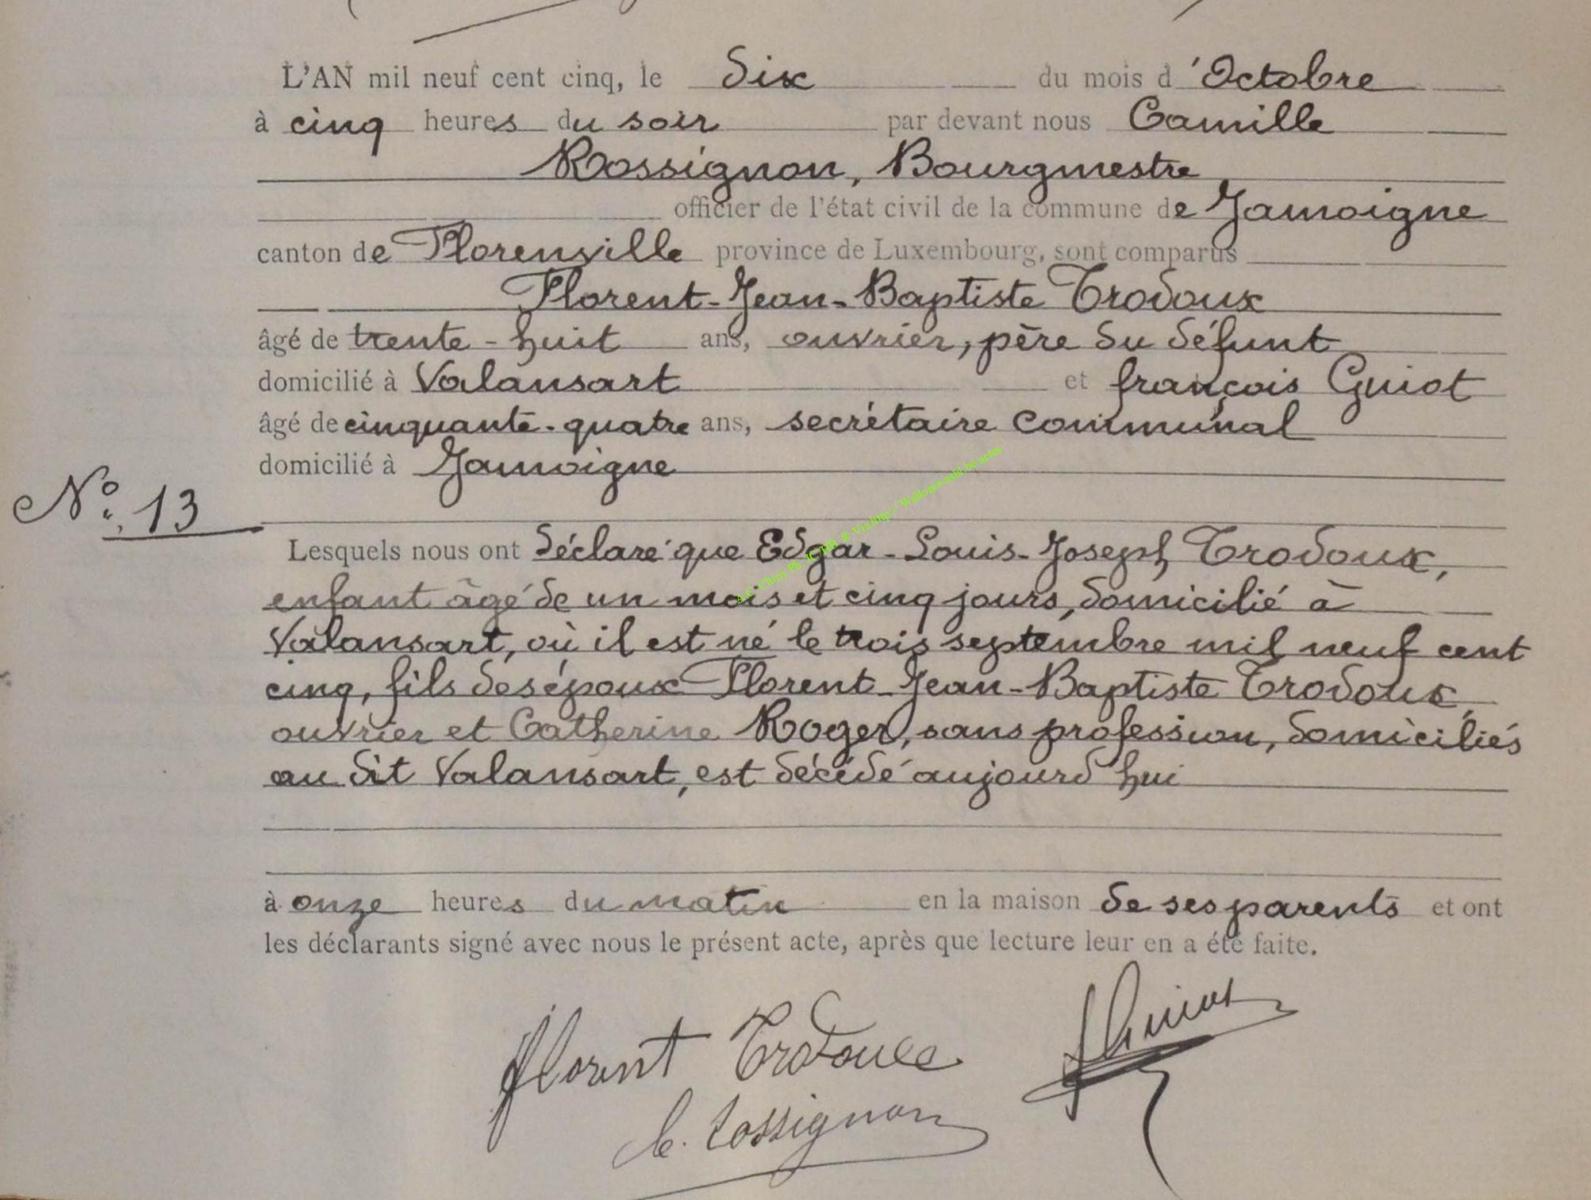 L'AN mil neuf cent cinq, le Six du mois d'Octobre
à cinq heures du soir par devant nous Camille
Rossignon, Bourgmestre
officier de l'état civil de la commune de Jamoigne
canton de Florenville province de Luxembourg, sont comparus
Florent-Jean-Baptiste Trodoux
âgé de trente-huit ans, ouvrier, père du défunt
domicilié à Valansart et françois Guiot
âgé de cinquante-quatre ans, secrétaire communal
domicilié à Jamoigne
No. 13
Lesquels nous ont déclaré que Edgar-Louis-Joseph Trodoux,
enfant âgé de un mois et cinq jours, domicilié à
Valansart, où il est né le trois septembre mil neuf cent
cinq, fils des époux Florent-Jean-Baptiste Trodoux,
ouvrier et Catherine Roger, sans profession, domiciliés
au dit Valansart, est décédé aujourd'hui
à onze heures du matin en la maison de ses parents et ont
les déclarants signé avec nous le présent acte, après que lecture leur en a été faite.
florent Trodoux
f Guiot
C. Rossignon